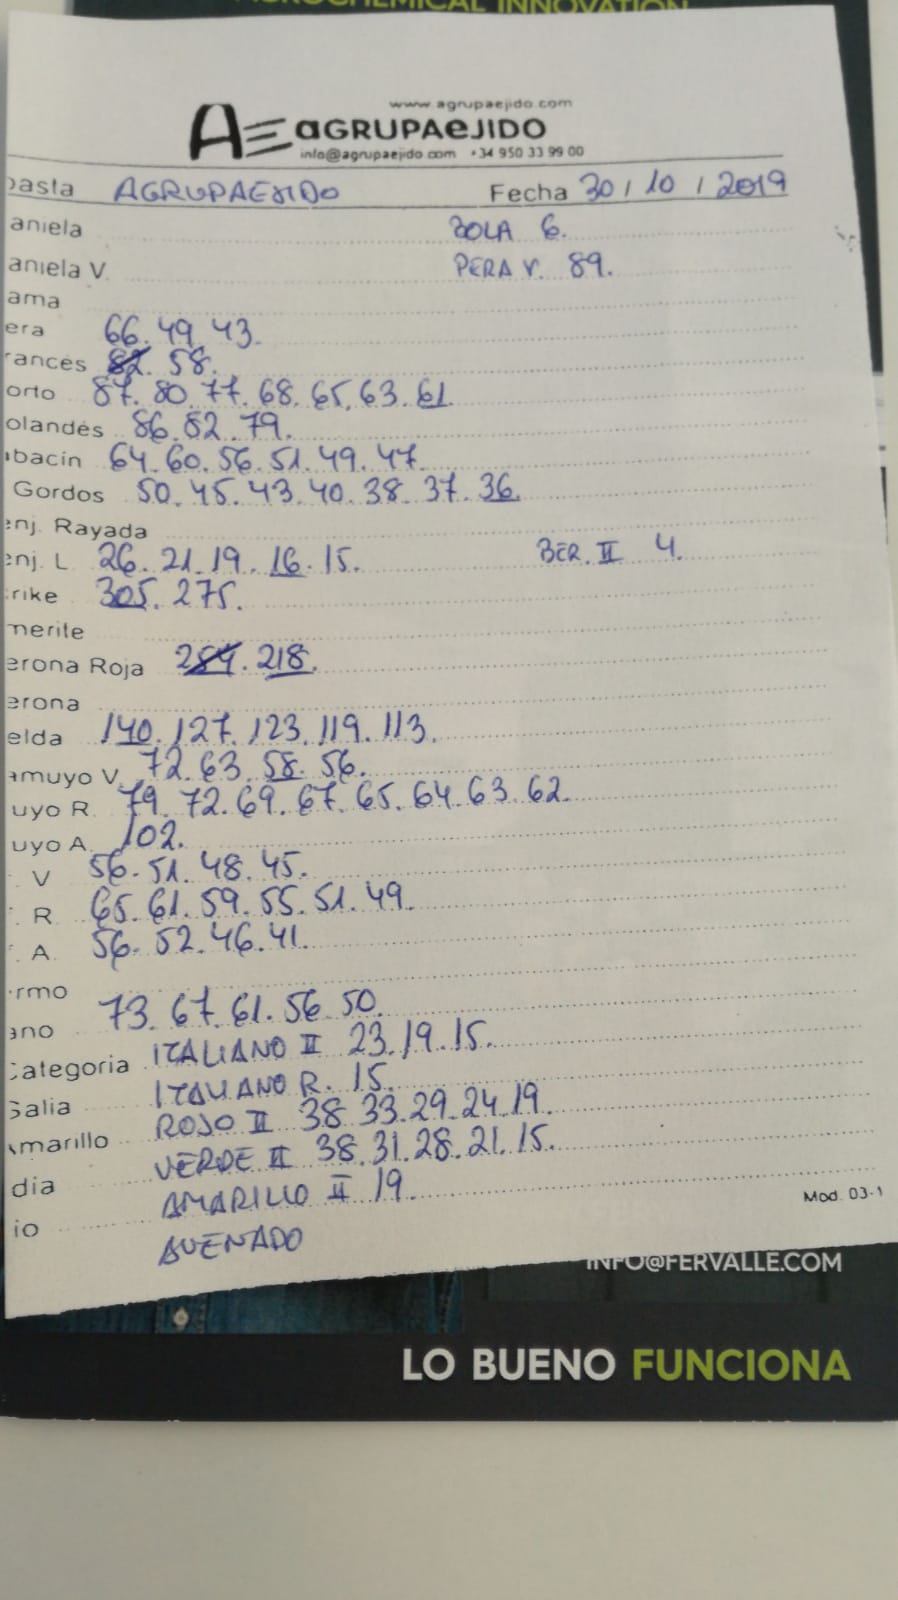 AGROCHEMICAL INNOVATION
www.agrupaejido.com
AGRUPAEJIDO
info@agrupaejido.com +34 950 33 99 00
basta AGRUPAEJIDO Fecha 30/10/2019
aniela BOLA 6.
aniela V. PERA V. 89.
ama
era 66.49.43.
rancés 82.58.
orto 87.80.77.68.65.63.61
olandés 86.82.79.
abacín 64.60.56.51.49.47.
Gordos 50.45.43.40.38.37.36.
enj. Rayada
enj. L 26.21.19.16.15. BER. II 4.
rike 305.275.
merite
erona Roja 218.
erona
elda 140.127.123.119.113.
amuyo V. 72.63.58.56.
uyo R. 79.72.69.67.65.64.63.62.
uyo A. 102.
V 56.51.48.45.
R 65.61.59.55.51.49.
A. 56.52.46.41.
rmo
ano 73.67.61.56.50.
Categoria ITALIANO II 23.19.15.
Galia ITALIANO R. 15.
marillo ROJO II 38.33.29.24.19.
dia VERDE II 38.31.28.21.15.
io AMARILLO II 19.
AVENADO
Mod. 03-1
INFO@FERVALLE.COM
LO BUENO FUNCIONA